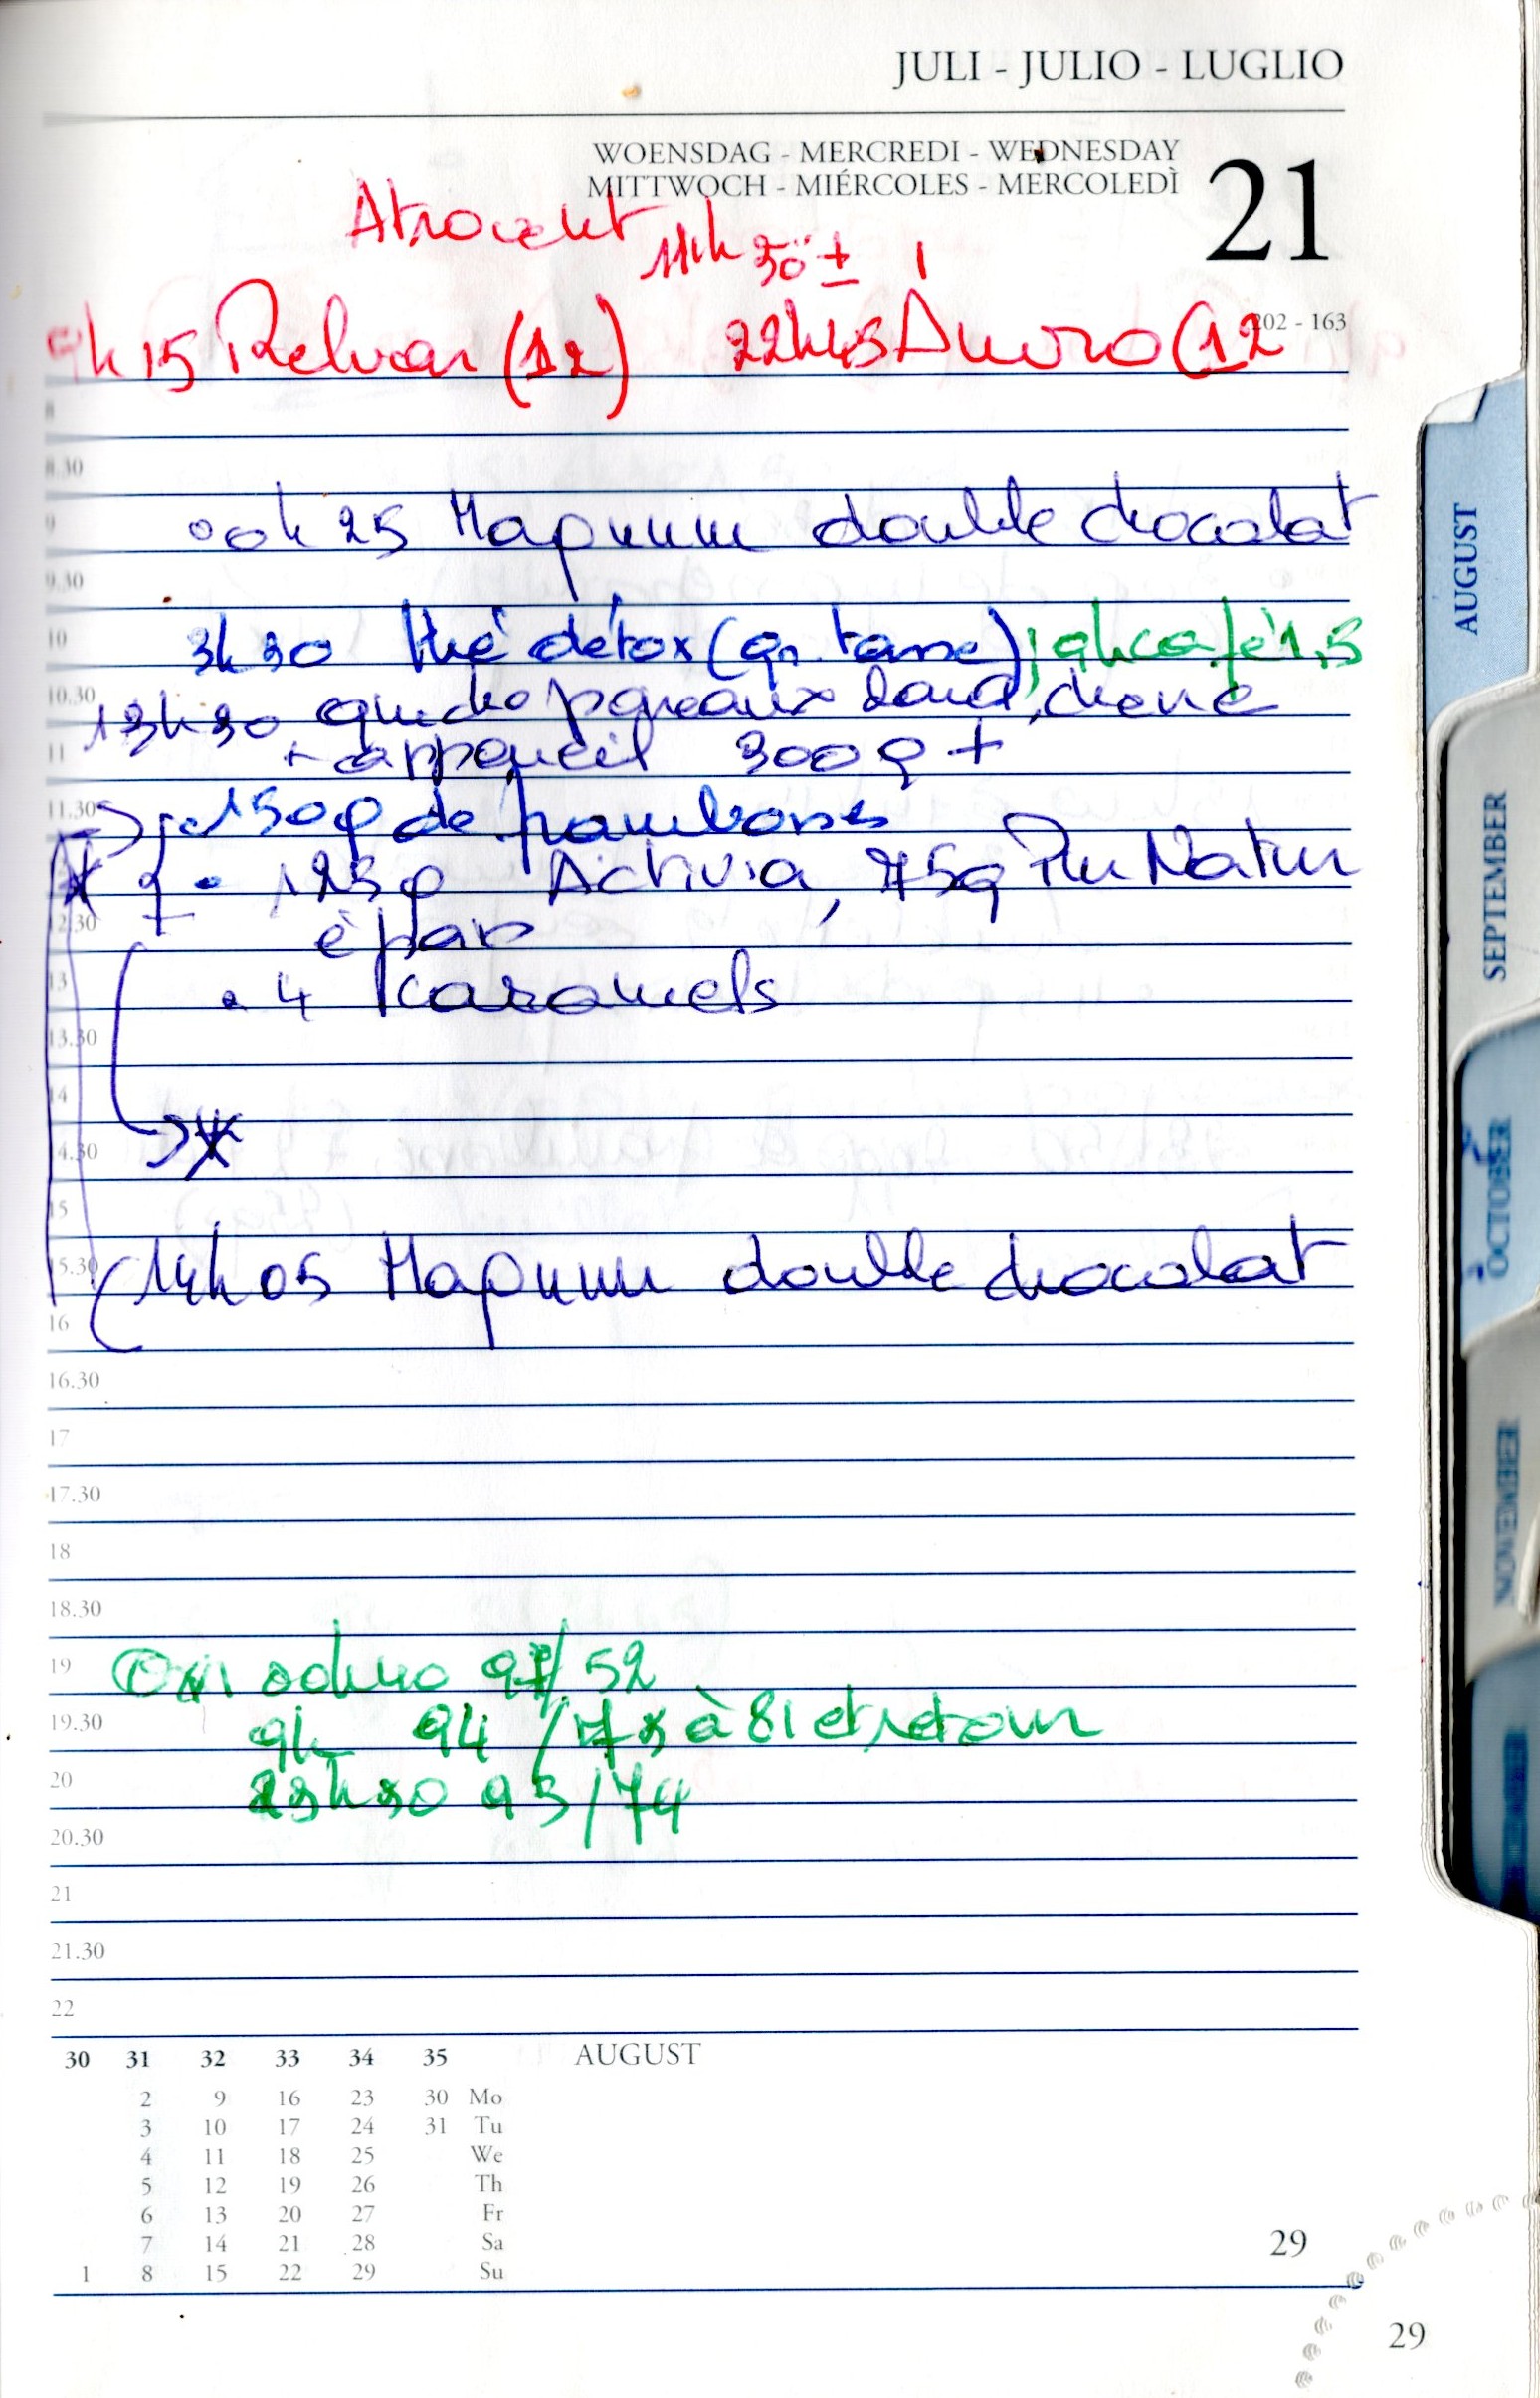 JULI - JULIO - LUGLIO
WOENSDAG - MERCREDI - WEDNESDAY
MITTWOCH - MIÉRCOLES - MERCOLEDÌ
21
Atrovent 11h30 ±
202 - 163
9h15 Relvar (12) 22h45 Anoro (12
8
8.30
9
00h25 Magnum double chocolat
9.30
10
3h30 thé détox (gn tasse); 9h café 1,5
10.30
13h30 quiche poireaux lard, chèvre
11
+ appareil 300g +
11.30
150g de framboises
125g Activia, 75g Pur Natur
12.30
épais
13
4 Karamels
13.30
14
14.30
15
15.30
14h05 Magnum double chocolat
16
16.30
17
17.30
18
18.30
19
97/52
19.30
9h 94 / 78 à 81 et retour
20
23h30 93/74
20.30
21
21.30
22
30 31 32 33 34 35 AUGUST
2 9 16 23 30 Mo
3 10 17 24 31 Tu
4 11 18 25 We
5 12 19 26 Th
6 13 20 27 Fr
7 14 21 28 Sa
1 8 15 22 29 Su
29
29
AUGUST
SEPTEMBER
OCTOBER
NOVEMBER